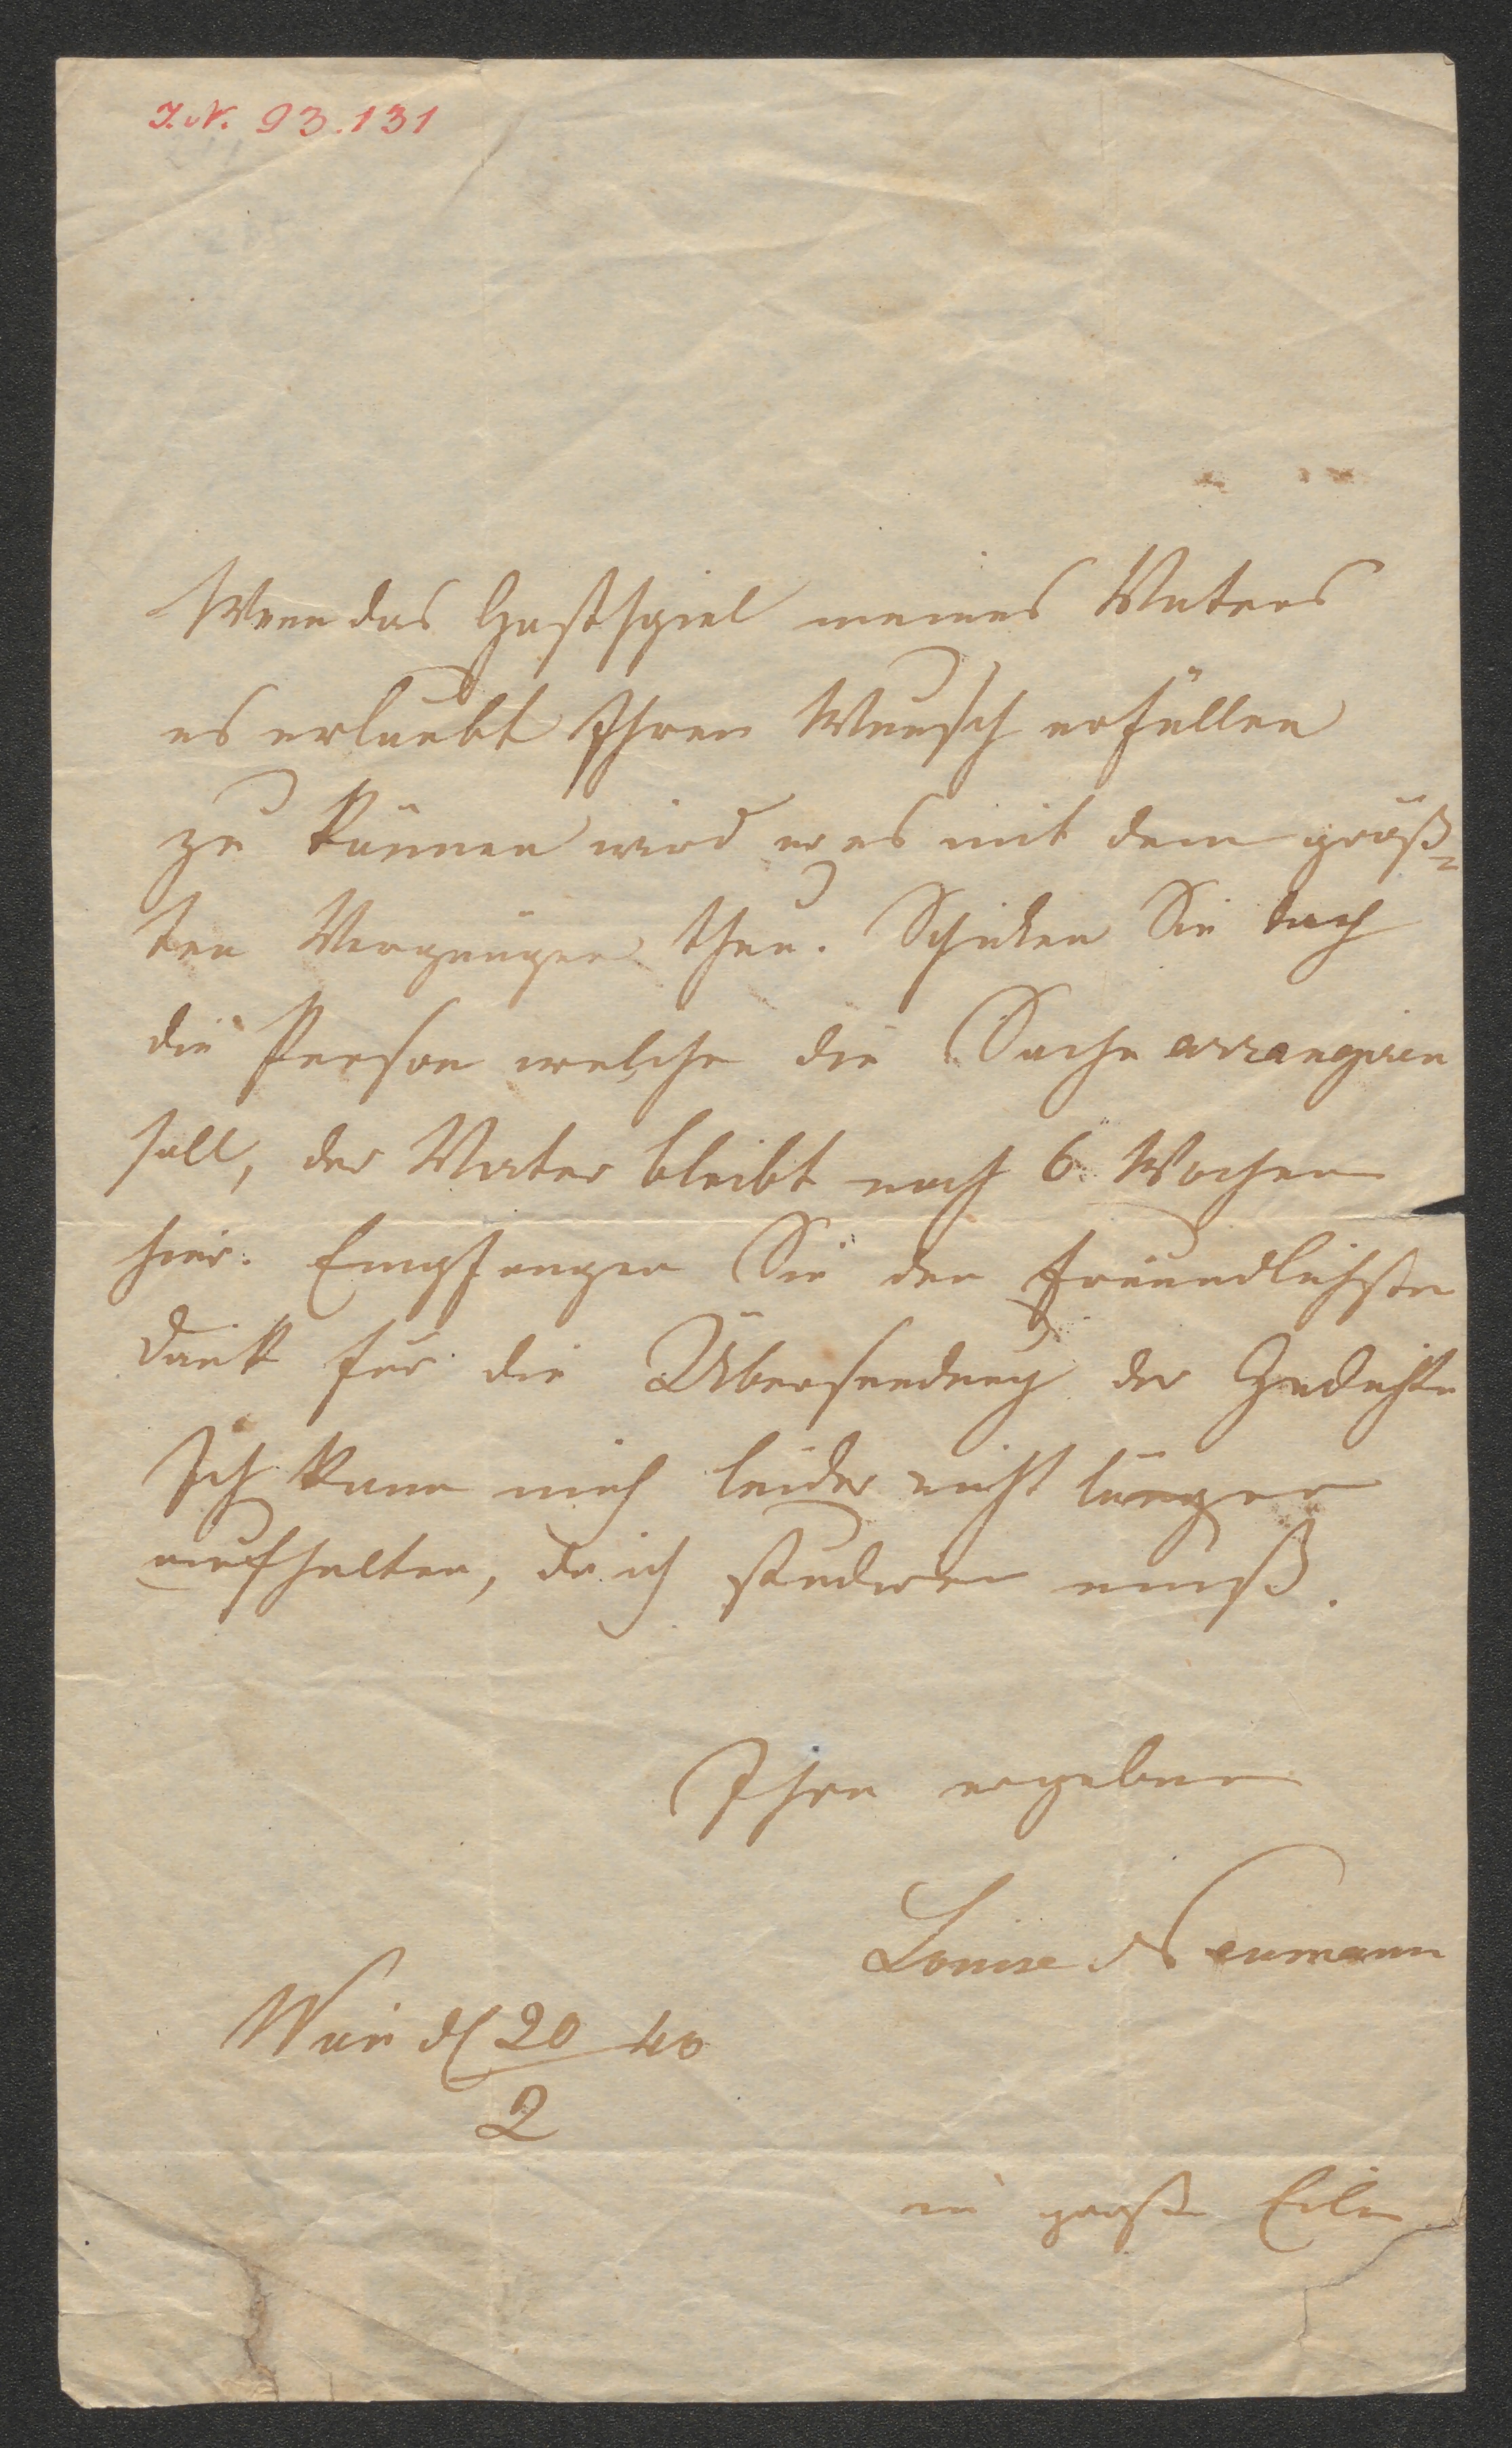 I.N. 93.131
Wenn das Gastspiel meines Vaters
es erlaubt Ihren Wunsch erfüllen
zu können wird er es mit dem größ=
ten Vergnügen thun. Schiken Sie doch
die Person welche die Sache arrangiren
soll, der Vater bleibt noch 6 Wochen
hier. Empfangen Sie den freundlichsten
Dank für die Übersendung der Gedichte
Ich kann mich leider nicht länger
aufhalten, da ich studiren muß.
Ihre ergebene
Louise Neumann
Wien d 20/2 40
in großer Eile